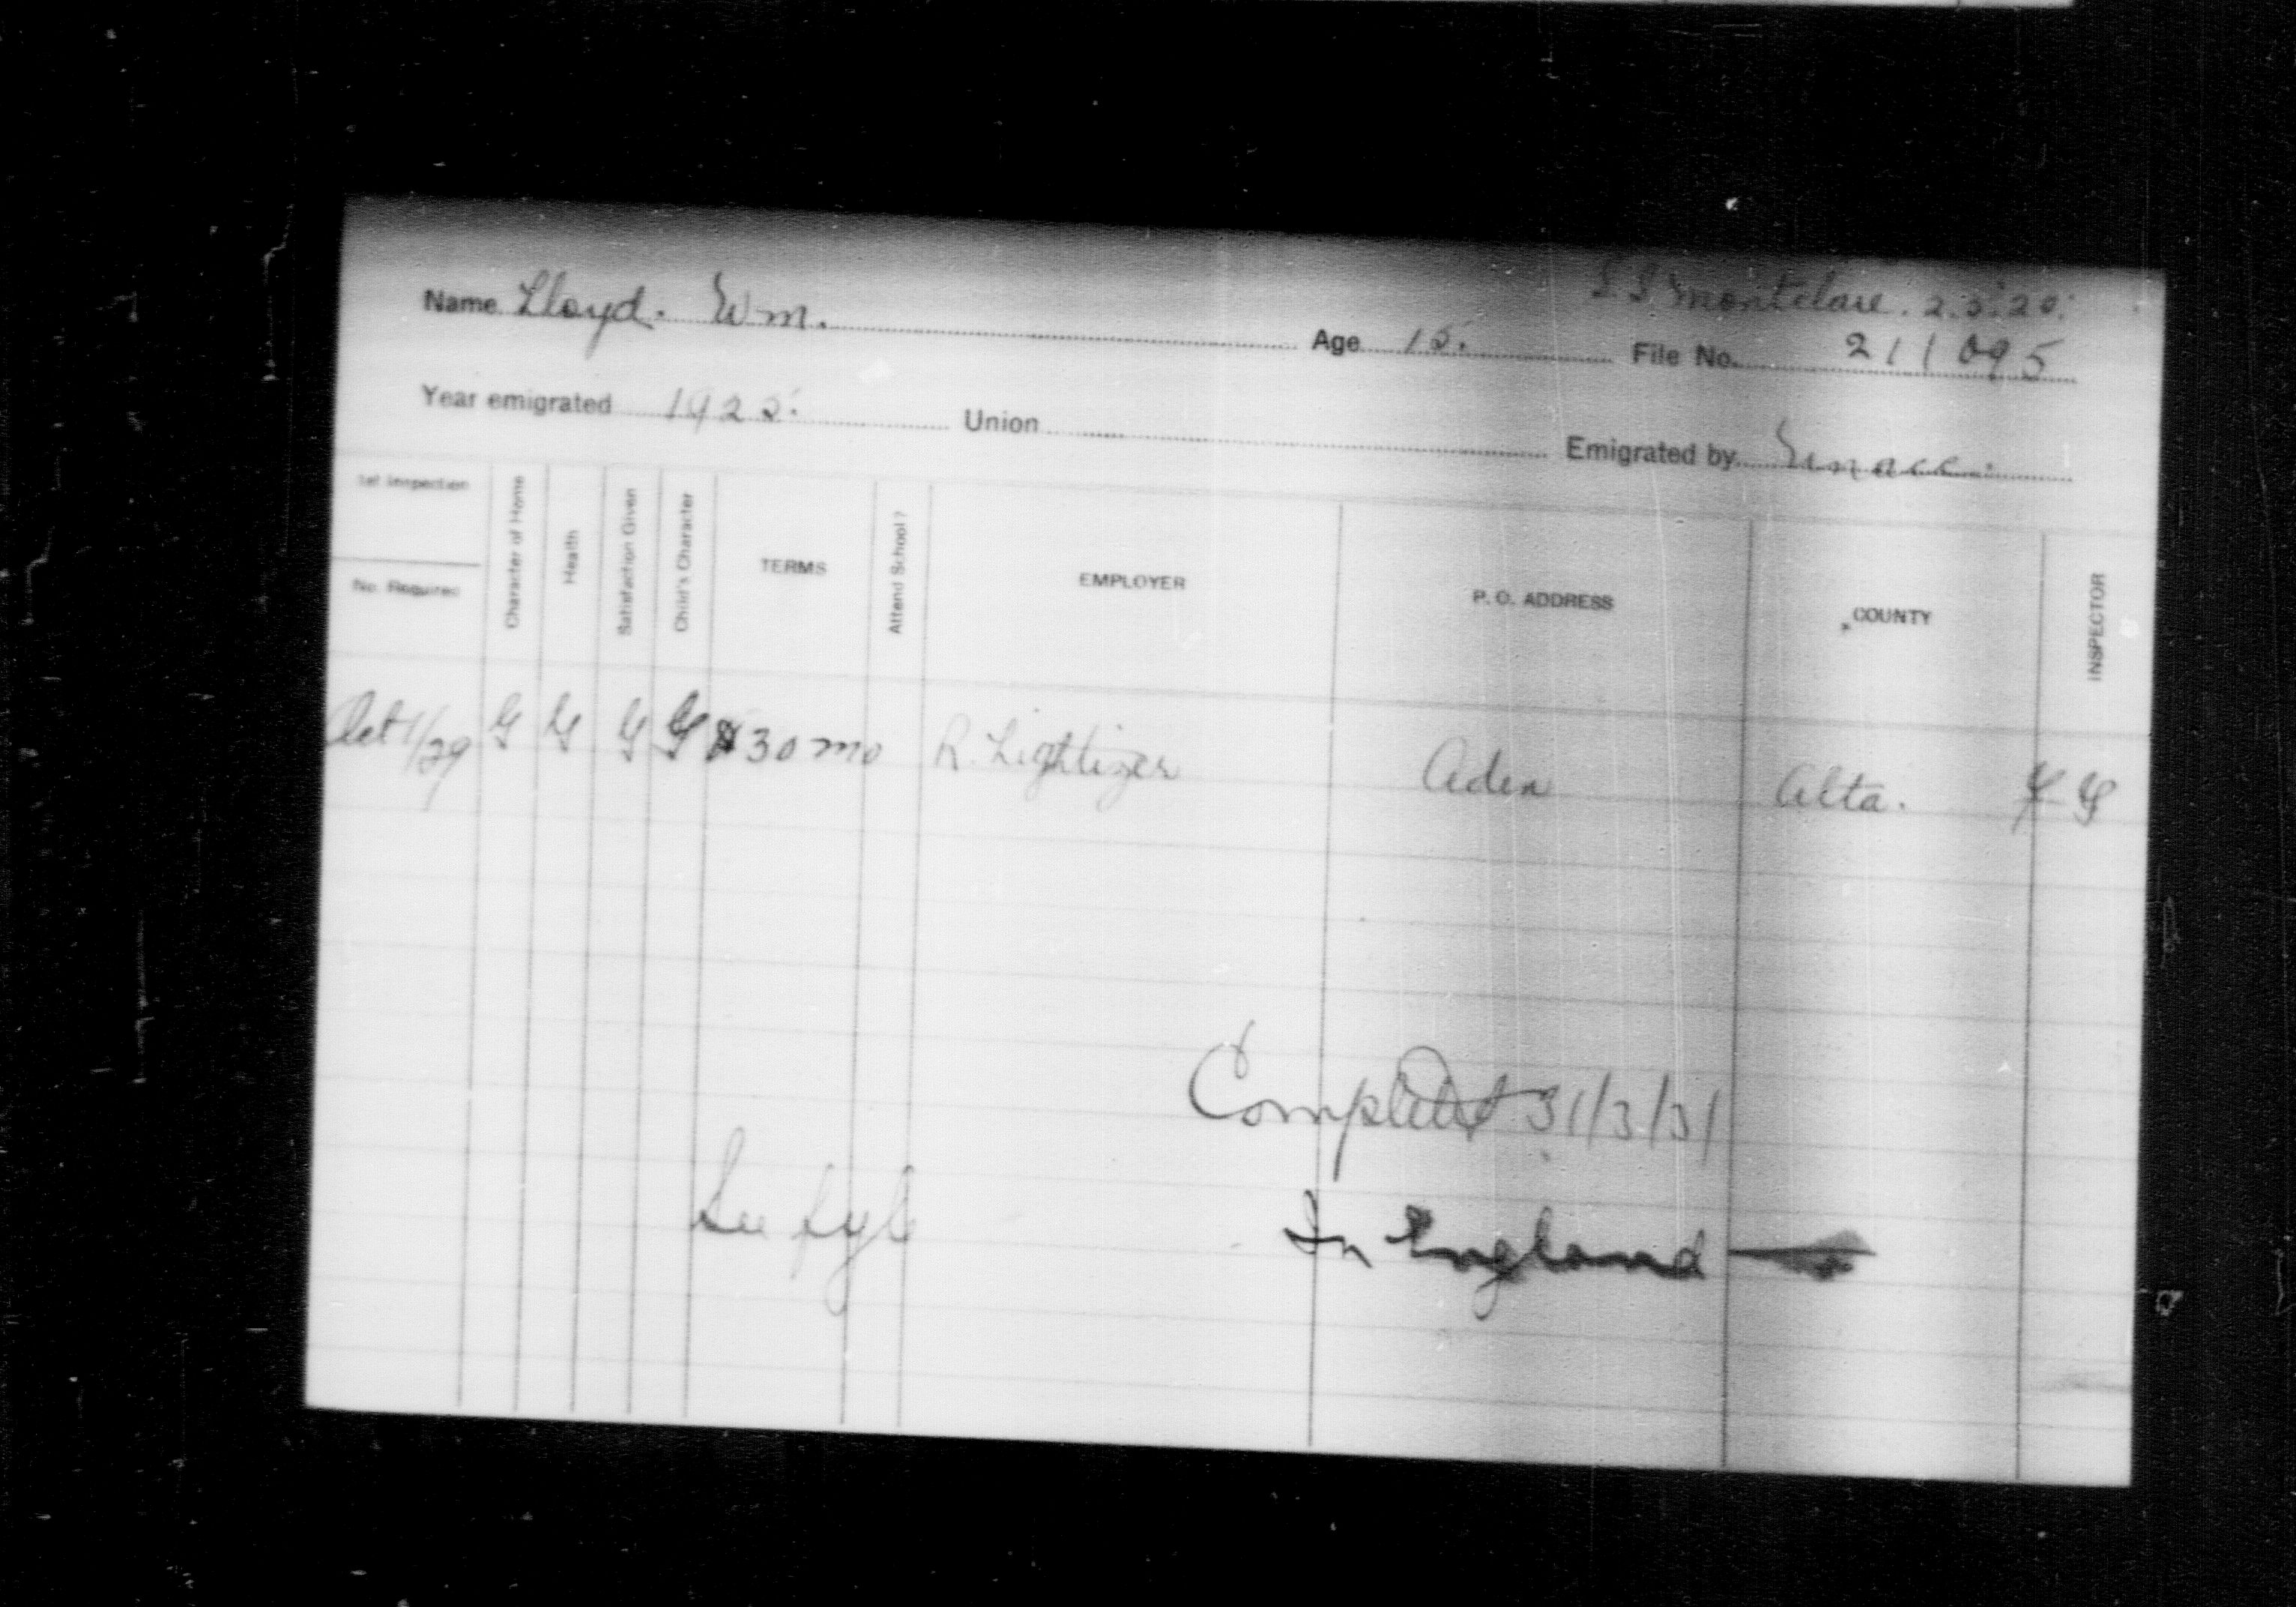 S S Montclare. 2.5.25.
Name Lloyd. Wm. Age 15. File No. 211095
Year emigrated 1925. Union Emigrated by
1st Inspection
No. Required
Character of Home
Health
Satisfaction Given
Child's Character
TERMS
Attend School?
EMPLOYER
P. O. ADDRESS
COUNTY
INSPECTOR
Oct 1/29 G G G G $30 mo R. Lightizer Aden Alta. G
Completed 31/3/31
See fyle
In England